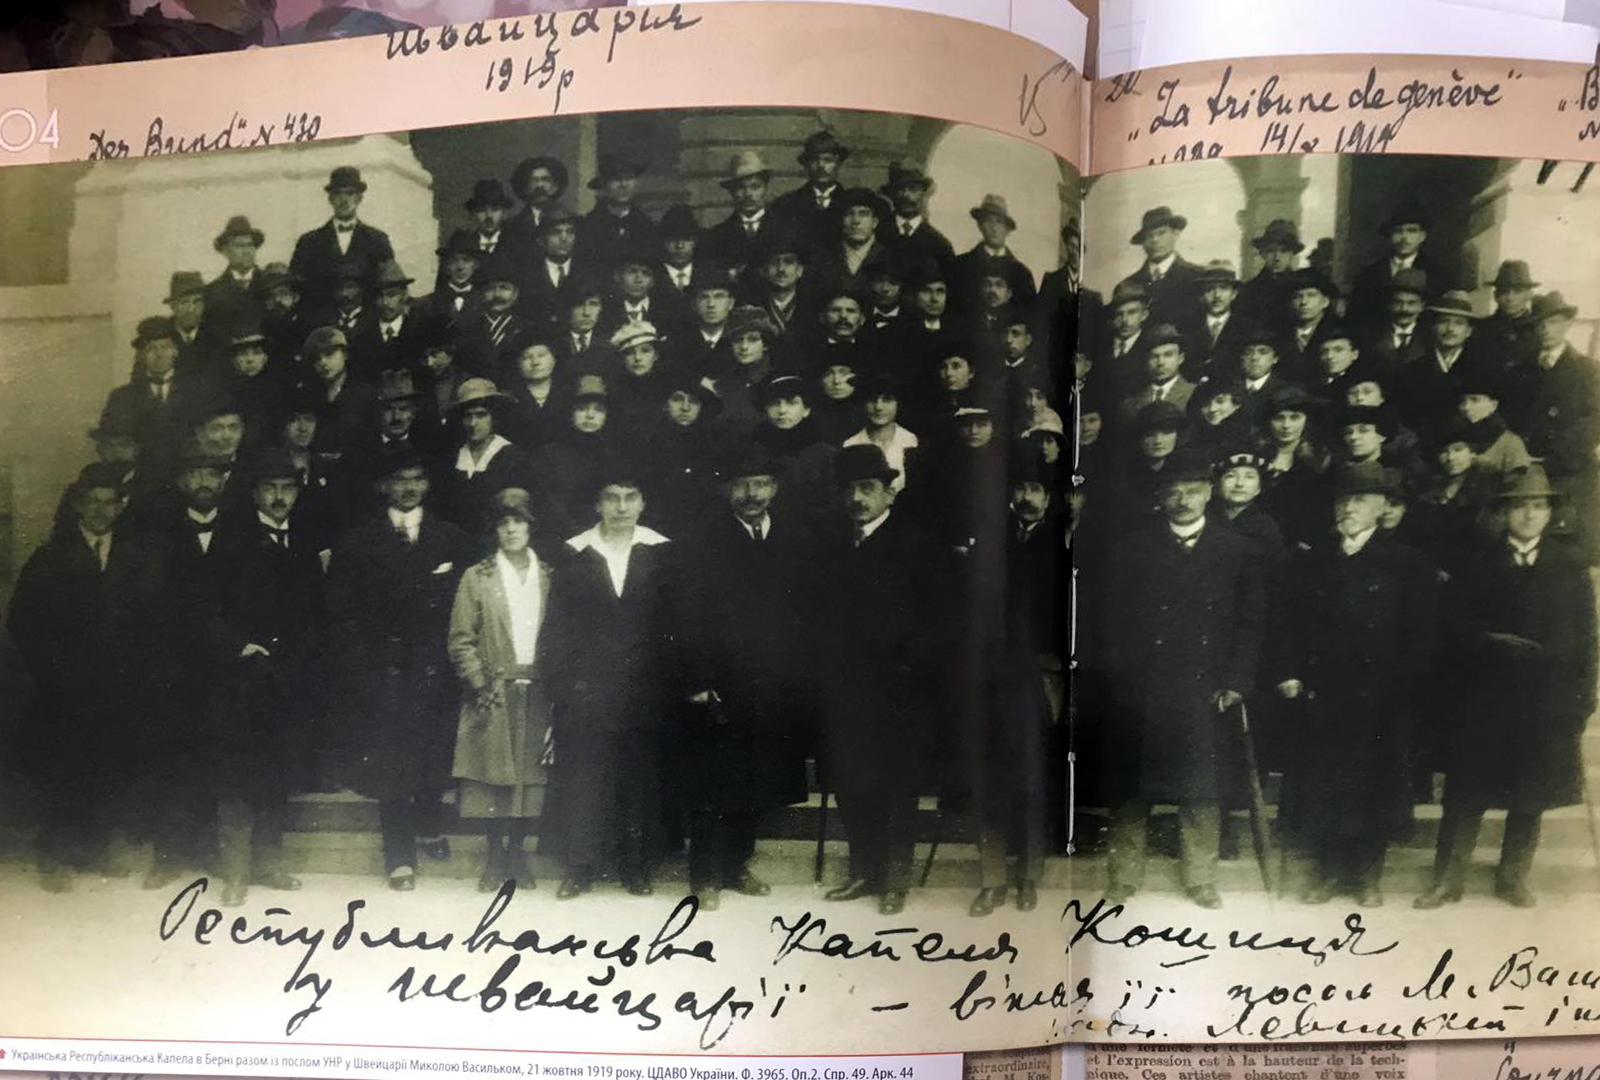 Швайцария
1919р
15
20
04
„Der Bund“ N 430
„La tribune de genève“
14/X 1919
Республиканська Капеля Кошиця
у Швейцарії – вітає її посол М. Васи
Левицький і ін
Українська Республіканська Капела в Берні разом із послом УНР у Швейцарії Миколою Васильком, 21 жовтня 1919 року. ЦДАВО України. Ф. 3965. Оп.2. Спр. 49. Арк. 44
extraordinaire,
et l'expression est à la hauteur de la tech-
nique. Ces artistes chantent d'une voix